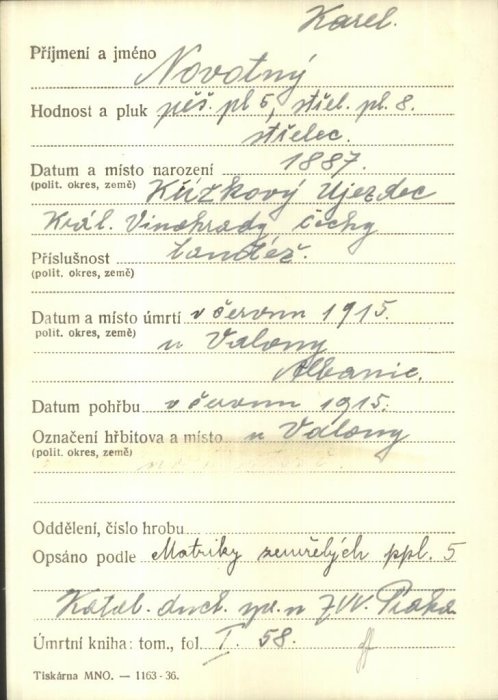 Karel.
Příjmení a jméno Novotný
Hodnost a pluk pěš. pl 5, střel. pl. 8.
střelec.
Datum a místo narození 1887.
(polit. okres, země) Křížkový Ujezdec
Král. Vinohrady Čechy
Příslušnost tamtéž.
(polit. okres, země)
Datum a místo úmrtí v červnu 1915.
polit. okres, země) u Valony
Albanie.
Datum pohřbu v červnu 1915.
Označení hřbitova a místo u Valony
(polit. okres, země)
Oddělení, číslo hrobu
Opsáno podle Matriky zemřelých ppl. 5
Katol. duch. spr. u ZVV. Praha
Úmrtní kniha: tom., fol. I. 58.
Tiskárna MNO. — 1163-36.